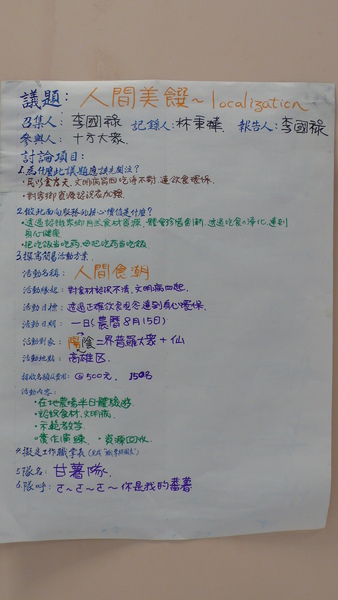 議題: 人間美饌~localization
召集人: 李國祿 記錄人: 林秉樺 報告人: 李國祿
參與人: 十方大眾
討論項目:
1. 為什麼此議題應該先關注?
•民以食為天、文明病需由吃得不對,連飲食環保.
•對家鄉資源認識者加強.
2. 做此面向服務的核心價值是什麼?
•透過認識家鄉自然食材當標,體會珍惜當新,透過吃食の淨化,達到
身心健康
•把吃飯當吃药,也把吃药当吃飯.
3. 撰寫簡易活動方案.
活動名稱: 人間食朝
活動緣起: 對食材認識不清、文明病四起.
活動目標: 透過正確飲食觀念達到身心環保.
活動日期: 一日(農曆8月15日)
活動對象: 陽陰二界普羅大眾+仙
活動地點: 高雄区.
招收名額&費用: @500元. 150名
活動內容:
•在地農場半日體驗遊
•認識食材、文明病
•示範教学
•實作演練. •資源回收.
4. 擬定工作職掌表
5. 隊名: 甘薯隊
6. 隊呼: ㄜ~ㄜ~ㄜ~你是我的蕃薯